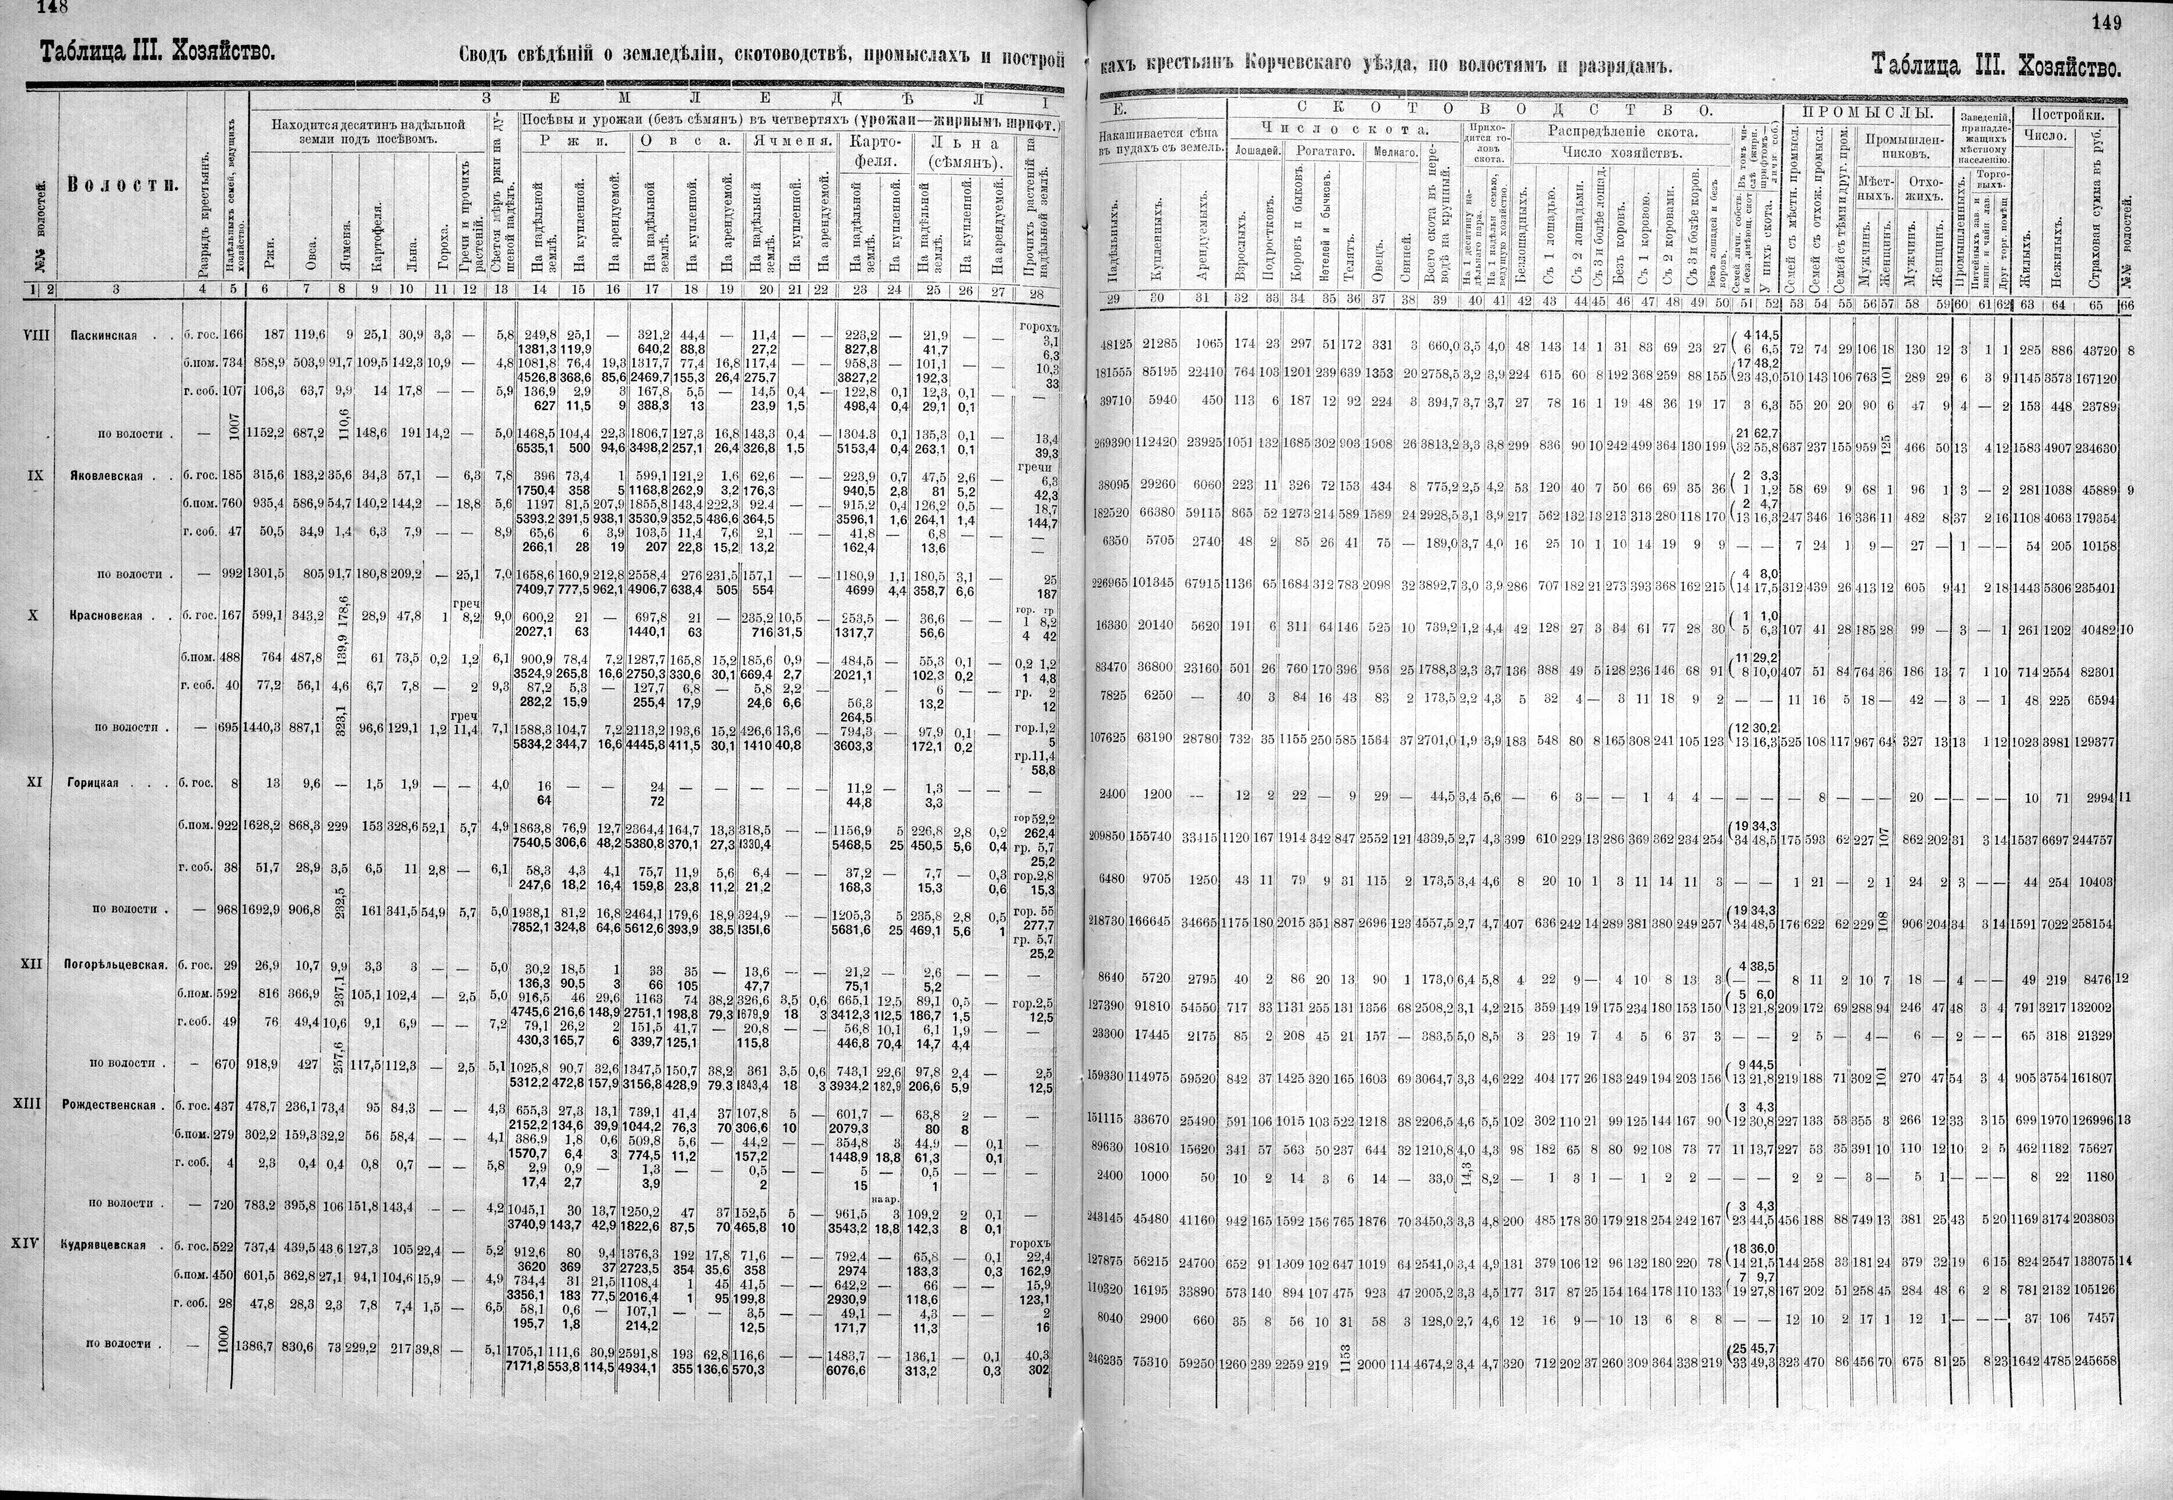 148
Таблица III. Хозяйство.
Сводъ свѣдѣній о земледѣліи, скотоводствѣ, промыслахъ и построй
№№ волостей.
Волости.
Разрядъ крестьянъ.
Надѣльныхъ семей, ведущихъ хозяйство.
З Е М Л Е Д Ѣ Л І
Находится десятинъ надѣльной земли подъ посѣвомъ.
Ржи. Овса. Ячменя. Картофеля. Льна. Гороха. Гречи и прочихъ растеній.
Сѣется мѣръ ржи на душевой надѣлъ.
Посѣвы и урожаи (безъ сѣмянъ) въ четвертяхъ (урожаи—жирнымъ шрифт.)
Ржи. Овса. Ячменя. Картофеля. Льна (сѣмянъ).
На надѣльной землѣ. На купленной. На арендуемой.
Прочихъ растеній на надѣльной землѣ.
1 2 3 4 5 6 7 8 9 10 11 12 13 14 15 16 17 18 19 20 21 22 23 24 25 26 27 28
VIII Паскинская . . б. гос. 166 187 119,6 9 25,1 30,9 3,3 — 5,8 249,8 25,1 — 321,2 44,4 — 11,4 — — 223,2 — 21,9 — — горохъ 3,1
1381,3 119,9 640,2 88,8 27,2 827,8 41,7 6,3
б.пом. 734 858,9 503,9 91,7 109,5 142,3 10,9 — 4,8 1081,8 76,4 19,3 1317,7 77,4 16,8 117,4 — — 958,3 — 101,1 — — 10,3
4526,8 368,6 85,6 2469,7 155,3 26,4 275,7 3827,2 192,3 33
г. соб. 107 106,3 63,7 9,9 14 17,8 — — 5,9 136,9 2,9 3 167,8 5,5 — 14,5 0,4 — 122,8 0,1 12,3 0,1 — —
627 11,5 9 388,3 13 23,9 1,5 498,4 0,4 29,1 0,1
по волости . — 1007 1152,2 687,2 110,6 148,6 191 14,2 — 5,0 1468,5 104,4 22,3 1806,7 127,3 16,8 143,3 0,4 — 1304.3 0,1 135,3 0,1 — 13,4
6535,1 500 94,6 3498,2 257,1 26,4 326,8 1,5 5153,4 0,4 263,1 0,1 39,3
IX Яковлевская . . б. гос. 185 315,6 183,2 35,6 34,3 57,1 — 6,3 7,8 396 73,4 1 599,1 121,2 1,6 62,6 — — 223,9 0,7 47,5 2,6 — гречи 6,3
1750,4 358 5 1168,8 262,9 3,2 176,3 940,5 2,8 81 5,2 42,3
б.пом. 760 935,4 586,9 54,7 140,2 144,2 — 18,8 5,6 1197 81,5 207,9 1855,8 143,4 222,3 92.4 — — 915,2 0,4 126,2 0,5 — 18,7
5393,2 391,5 938,1 3530,9 352,5 486,6 364,5 3596,1 1,6 264,1 1,4 144,7
г. соб. 47 50,5 34,9 1,4 6,3 7,9 — — 8,9 65,6 6 3,9 103,5 11,4 7,6 2,1 — — 41,8 — 6,8 — — —
266,1 28 19 207 22,8 15,2 13,2 162,4 13,6
по волости . — 992 1301,5 805 91,7 180,8 209,2 — 25,1 7,0 1658,6 160,9 212,8 2558,4 276 231,5 157,1 — — 1180,9 1,1 180,5 3,1 — 25
7409,7 777,5 962,1 4906,7 638,4 505 554 4699 4,4 358,7 6,6 187
X Красновская . . б. гос. 167 599,1 343,2 178,6 28,9 47,8 1 греч 8,2 9,0 600,2 21 — 697,8 21 — 235,2 10,5 — 253,5 — 36,6 — — гор. гр 1 8,2
2027,1 63 1440,1 63 716 31,5 1317,7 56,6 4 42
б.пом. 488 764 487,8 139,9 61 73,5 0,2 1,2 6,1 900,9 78,4 7,2 1287,7 165,8 15,2 185,6 0,9 — 484,5 — 55,3 0,1 — 0,2 1,2
3524,9 265,8 16,6 2750,3 330,6 30,1 669,4 2,7 2021,1 102,3 0,2 1 4,8
г. соб. 40 77,2 56,1 4,6 6,7 7,8 — 2 9,3 87,2 5,3 — 127,7 6,8 — 5,8 2,2 — 56,3 — 6 — — гр. 2
282,2 15,9 255,4 17,9 24,6 6,6 264,5 13,2 12
по волости . — 695 1440,3 887,1 323,1 96,6 129,1 1,2 греч 11,4 7,1 1588,3 104,7 7,2 2113,2 193,6 15,2 426,6 13,6 — 794,3 — 97,9 0,1 — гор.1,2
5834,2 344,7 16,6 4445,8 411,5 30,1 1410 40,8 3603,3 172,1 0,2 5
гр.11,4
58,8
XI Горицкая . . . б. гос. 8 13 9,6 — 1,5 1,9 — — 4,0 16 — — 24 — — — — — 11,2 — 1,3 — — —
64 72 44,8 3,3
б.пом. 922 1628,2 868,3 229 153 328,6 52,1 5,7 4,9 1863,8 76,9 12,7 2364,4 164,7 13,3 318,5 — — 1156,9 5 226,8 2,8 0,2 гор 52,2
7540,5 306,6 48,2 5380,8 370,1 27,3 1330,4 5468,5 25 450,5 5,6 0,4 262,4
гр. 5,7
25,2
г. соб. 38 51,7 28,9 3,5 6,5 11 2,8 — 6,1 58,3 4,3 4,1 75,7 11,9 5,6 6,4 — — 37,2 — 7,7 — 0,3 гор.2,8
247,6 18,2 16,4 159,8 23,8 11,2 21,2 168,3 15,3 0,6 15,3
по волости . — 968 1692,9 906,8 232,5 161 341,5 54,9 5,7 5,0 1938,1 81,2 16,8 2464,1 179,6 18,9 324,9 — — 1205,3 5 235,8 2,8 0,5 гор. 55
7852,1 324,8 64,6 5612,6 393,9 38,5 1351,6 5681,6 25 469,1 5,6 1 277,7
гр. 5,7
25,2
XII Погорѣльцевская. б. гос. 29 26,9 10,7 9,9 3,3 3 — — 5,0 30,2 18,5 1 33 35 — 13,6 — — 21,2 — 2,6 — — —
136,3 90,5 3 66 105 47,7 75,1 5,2
б.пом. 592 816 366,9 237,1 105,1 102,4 — 2,5 5,0 916,5 46 29,6 1163 74 38,2 326,6 3,5 0,6 665,1 12,5 89,1 0,5 — гор.2,5
4745,6 216,6 148,9 2751,1 198,8 79,3 1679,9 18 3 3412,3 112,5 186,7 1,5 12,5
г. соб. 49 76 49,4 10,6 9,1 6,9 — — 7,2 79,1 26,2 2 151,5 41,7 — 20,8 — — 56,8 10,1 6,1 1,9 — —
430,3 165,7 6 339,7 125,1 115,8 446,8 70,4 14,7 4,4
по волости . — 670 918,9 427 257,6 117,5 112,3 — 2,5 5,1 1025,8 90,7 32,6 1347,5 150,7 38,2 361 3,5 0,6 743,1 22,6 97,8 2,4 — 2,5
5312,2 472,8 157,9 3156,8 428,9 79.3 1843,4 18 3 3934,2 182,9 206,6 5,9 12,5
XIII Рождественская . б. гос. 437 478,7 236,1 73,4 95 84,3 — — 4,3 655,3 27,3 13,1 739,1 41,4 37 107,8 5 — 601,7 — 63,8 2 — —
2152,2 134,6 39,9 1044,2 76,3 70 306,6 10 2079,3 80 8
б.пом. 279 302,2 159,3 32,2 56 58,4 — — 4,1 386,9 1,8 0,6 509,8 5,6 — 44,2 — — 354,8 3 44,9 — 0,1 —
1570,7 6,4 3 774,5 11,2 157,2 1448,9 18,8 61,3 0,1
г. соб. 4 2,3 0,4 0,4 0,8 0,7 — — 5,8 2,9 0,9 — 1,3 — — 0,5 — — 5 — 0,5 — — —
17,4 2,7 3,9 2 15 1
по волости . — 720 783,2 395,8 106 151,8 143,4 — — 4,2 1045,1 30 13,7 1250,2 47 37 152,5 5 — 961,5 на ар. 3 109,2 2 0,1 —
3740,9 143,7 42,9 1822,6 87,5 70 465,8 10 3543,2 18,8 142,3 8 0,1
XIV Кудрявцевская . б. гос. 522 737,4 439,5 43 6 127,3 105 22,4 — 5,2 912,6 80 9,4 1376,3 192 17,8 71,6 — — 792,4 — 65,8 — 0,1 горохъ 22,4
3620 369 37 2723,5 354 35,6 358 2974 183,3 0,3 162,9
б.пом. 450 601,5 362,8 27,1 94,1 104,6 15,9 — 4,9 734,4 31 21,5 1108,4 1 45 41,5 — — 642,2 — 66 — — 15,9
3356,1 183 77,5 2016,4 1 95 199,8 2930,9 118,6 123,1
г. соб. 28 47,8 28,3 2,3 7,8 7,4 1,5 — 6,5 58,1 0,6 — 107,1 — — 3,5 — — 49,1 — 4,3 — — 2
195,7 1,8 214,2 12,5 171,7 11,3 16
по волости . — 1000 1386,7 830,6 73 229,2 217 39,8 — 5,1 1705,1 111,6 30,9 2591,8 193 62,8 116,6 — — 1483,7 — 136,1 — 0,1 40,3
7171,8 553,8 114,5 4934,1 355 136,6 570,3 6076,6 313,2 0,3 302
149
кахъ крестьянъ Корчевскаго уѣзда, по волостямъ и разрядамъ.
Таблица III. Хозяйство.
Е.
Накашивается сѣна въ пудахъ съ земель.
Надѣльныхъ. Купленныхъ. Арендуемыхъ.
С К О Т О В О Д С Т В О.
Число скота.
Лошадей. Рогатаго. Мелкаго.
Взрослыхъ. Подростковъ. Коровъ и быковъ. Нетелей и бычковъ. Телятъ. Овецъ. Свиней.
Всего скота въ переводѣ на крупный.
Приходится головъ скота.
На 1 десятину надѣльнаго пара. На 1 надѣльн семью, ведущую хозяйство.
Распредѣленіе скота.
Число хозяйствъ.
Безлошадныхъ. Съ 1 лошадью. Съ 2 лошадьми. Съ 3 и болѣе лошад. Безъ коровъ. Съ 1 коровою. Съ 2 коровами. Съ 3 и болѣе коров. Безъ лошадей и безъ коровъ.
У нихъ скота.
ПРОМЫСЛЫ.
Семей съ мѣстн. промысл. Семей съ отхож. промысл. Семей съ тѣми и друг. пром.
Промышленниковъ.
Мѣстныхъ. Отхожихъ.
Мужчинъ. Женщинъ. Мужчинъ. Женщинъ.
Заведеній, принадлежащихъ мѣстному населенію.
Промышленныхъ. Торговыхъ.
Постройки.
Число.
Жилыхъ. Нежилыхъ. Страховая сумма въ руб.
№№ волостей.
29 30 31 32 33 34 35 36 37 38 39 40 41 42 43 44 45 46 47 48 49 50 51 52 53 54 55 56 57 58 59 60 61 62 63 64 65 66
48125 21285 1065 174 23 297 51 172 331 3 660,0 3,5 4,0 48 143 14 1 31 83 69 23 27 (4 14,5 / 6 6,5 72 74 29 106 18 130 12 3 1 1 285 886 43720 8
181555 85195 22410 764 103 1201 239 639 1353 20 2758,5 3,2 3,9 224 615 60 8 192 368 259 88 155 (17 48,2 / 23 43,0 510 143 106 763 101 289 29 6 3 9 1145 3573 167120
39710 5940 450 113 6 187 12 92 224 3 394,7 3,7 3,7 27 78 16 1 19 48 36 19 17 3 6,3 55 20 20 90 6 47 9 4 — 2 153 448 23789
269390 112420 23925 1051 132 1685 302 903 1908 26 3813,2 3,3 3,8 299 836 90 10 242 499 364 130 199 (21 62,7 / 32 55,8 637 237 155 959 125 466 50 13 4 12 1583 4907 234630
38095 29260 6060 223 11 326 72 153 434 8 775,2 2,5 4,2 53 120 40 7 50 66 69 35 36 (2 3,3 / 1 1,2 58 69 9 68 1 96 1 3 — 2 281 1038 45889 9
182520 66380 59115 865 52 1273 214 589 1589 24 2928,5 3,1 3,9 217 562 132 13 213 313 280 118 170 (2 4,7 / 13 16,3 247 346 16 336 11 482 8 37 2 16 1108 4063 179354
6350 5705 2740 48 2 85 26 41 75 — 189,0 3,7 4,0 16 25 10 1 10 14 19 9 9 — — 7 24 1 9 — 27 — 1 — — 54 205 10158
226965 101345 67915 1136 65 1684 312 783 2098 32 3892,7 3,0 3,9 286 707 182 21 273 393 368 162 215 (4 8,0 / 14 17,5 312 439 26 413 12 605 9 41 2 18 1443 5306 235401
16330 20140 5620 191 6 311 64 146 525 10 739,2 1,2 4,4 42 128 27 3 34 61 77 28 30 (1 1,0 / 5 6,3 107 41 28 185 28 99 — 3 — 1 261 1202 40482 10
83470 36800 23160 501 26 760 170 396 956 25 1788,3 2,3 3,7 136 388 49 5 128 236 146 68 91 (11 29,2 / 8 10,0 407 51 84 764 36 186 13 7 1 10 714 2554 82301
7825 6250 — 40 3 84 16 43 83 2 173,5 2,2 4,3 5 32 4 — 3 11 18 9 2 — — 11 16 5 18 — 42 — 3 — 1 48 225 6594
107625 63190 28780 732 35 1155 250 585 1564 37 2701,0 1,9 3,9 183 548 80 8 165 308 241 105 123 (12 30,2 / 13 16,3 525 108 117 967 64 327 13 13 1 12 1023 3981 129377
2400 1200 — 12 2 22 — 9 29 — 44,5 3,4 5,6 — 6 3 — — 1 4 4 — — — — 8 — — — 20 — — — — 10 71 2994 11
209850 155740 33415 1120 167 1914 342 847 2552 121 4339,5 2,7 4,3 399 610 229 13 286 369 362 234 254 (19 34,3 / 34 48,5 175 593 62 227 107 862 202 31 3 14 1537 6697 244757
6480 9705 1250 43 11 79 9 31 115 2 173,5 3,4 4,6 8 20 10 1 3 11 14 11 3 — — 1 21 — 2 1 24 2 3 — — 44 254 10403
218730 166645 34665 1175 180 2015 351 887 2696 123 4557,5 2,7 4,7 407 636 242 14 289 381 380 249 257 (19 34,3 / 34 48,5 176 622 62 229 108 906 204 34 3 14 1591 7022 258154
8640 5720 2795 40 2 86 20 13 90 1 173,0 6,4 5,8 4 22 9 — 4 10 8 13 3 (4 38,5 / — — 8 11 2 10 7 18 — 4 — — 49 219 8476 12
127390 91810 54550 717 33 1131 255 131 1356 68 2508,2 3,1 4,2 215 359 149 19 175 234 180 153 150 (5 6,0 / 13 21,8 209 172 69 288 94 246 47 48 3 4 791 3217 132002
23300 17445 2175 85 2 208 45 21 157 — 383,5 5,0 8,5 3 23 19 7 4 5 6 37 3 — — 2 5 — 4 — 6 — 2 — — 65 318 21329
159330 114975 59520 842 37 1425 320 165 1603 69 3064,7 3,3 4,6 222 404 177 26 183 249 194 203 156 (9 44,5 / 13 21,8 219 188 71 302 101 270 47 54 3 4 905 3754 161807
151115 33670 25490 591 106 1015 103 522 1218 38 2206,5 4,6 5,5 102 302 110 21 99 125 144 167 90 (3 4,3 / 12 30,8 227 133 53 355 3 266 12 33 3 15 699 1970 126996 13
89630 10810 15620 341 57 563 50 237 644 32 1210,8 4,0 4,3 98 182 65 8 80 92 108 73 77 11 13,7 227 53 35 391 10 110 12 10 2 5 462 1182 75627
2400 1000 50 10 2 14 3 6 14 — 33,0 14,3 8,2 — 1 3 1 — 1 2 2 — — — 2 2 — 3 — 5 1 — — — 8 22 1180
243145 45480 41160 942 165 1592 156 765 1876 70 3450,3 3,3 4,8 200 485 178 30 179 218 254 242 167 (3 4,3 / 23 44,5 456 188 88 749 13 381 25 43 5 20 1169 3174 203803
127875 56215 24700 652 91 1309 102 647 1019 64 2541,0 3,4 4,9 131 379 106 12 96 132 180 220 78 (18 36,0 / 14 21,5 144 258 33 181 24 379 32 19 6 15 824 2547 133075 14
110320 16195 33890 573 140 894 107 475 923 47 2005,2 3,3 4,5 177 317 87 25 154 164 178 110 133 (7 9,7 / 19 27,8 167 202 51 258 45 284 48 6 2 8 781 2132 105126
8040 2900 660 35 8 56 10 31 58 3 128,0 2,7 4,6 12 16 9 — 10 13 6 8 8 — — 12 10 2 17 1 12 1 — — — 37 106 7457
246235 75310 59250 1260 239 2259 219 1153 2000 114 4674,2 3,4 4,7 320 712 202 37 260 309 364 338 219 (25 45,7 / 33 49,3 323 470 86 456 70 675 81 25 8 23 1642 4785 245658